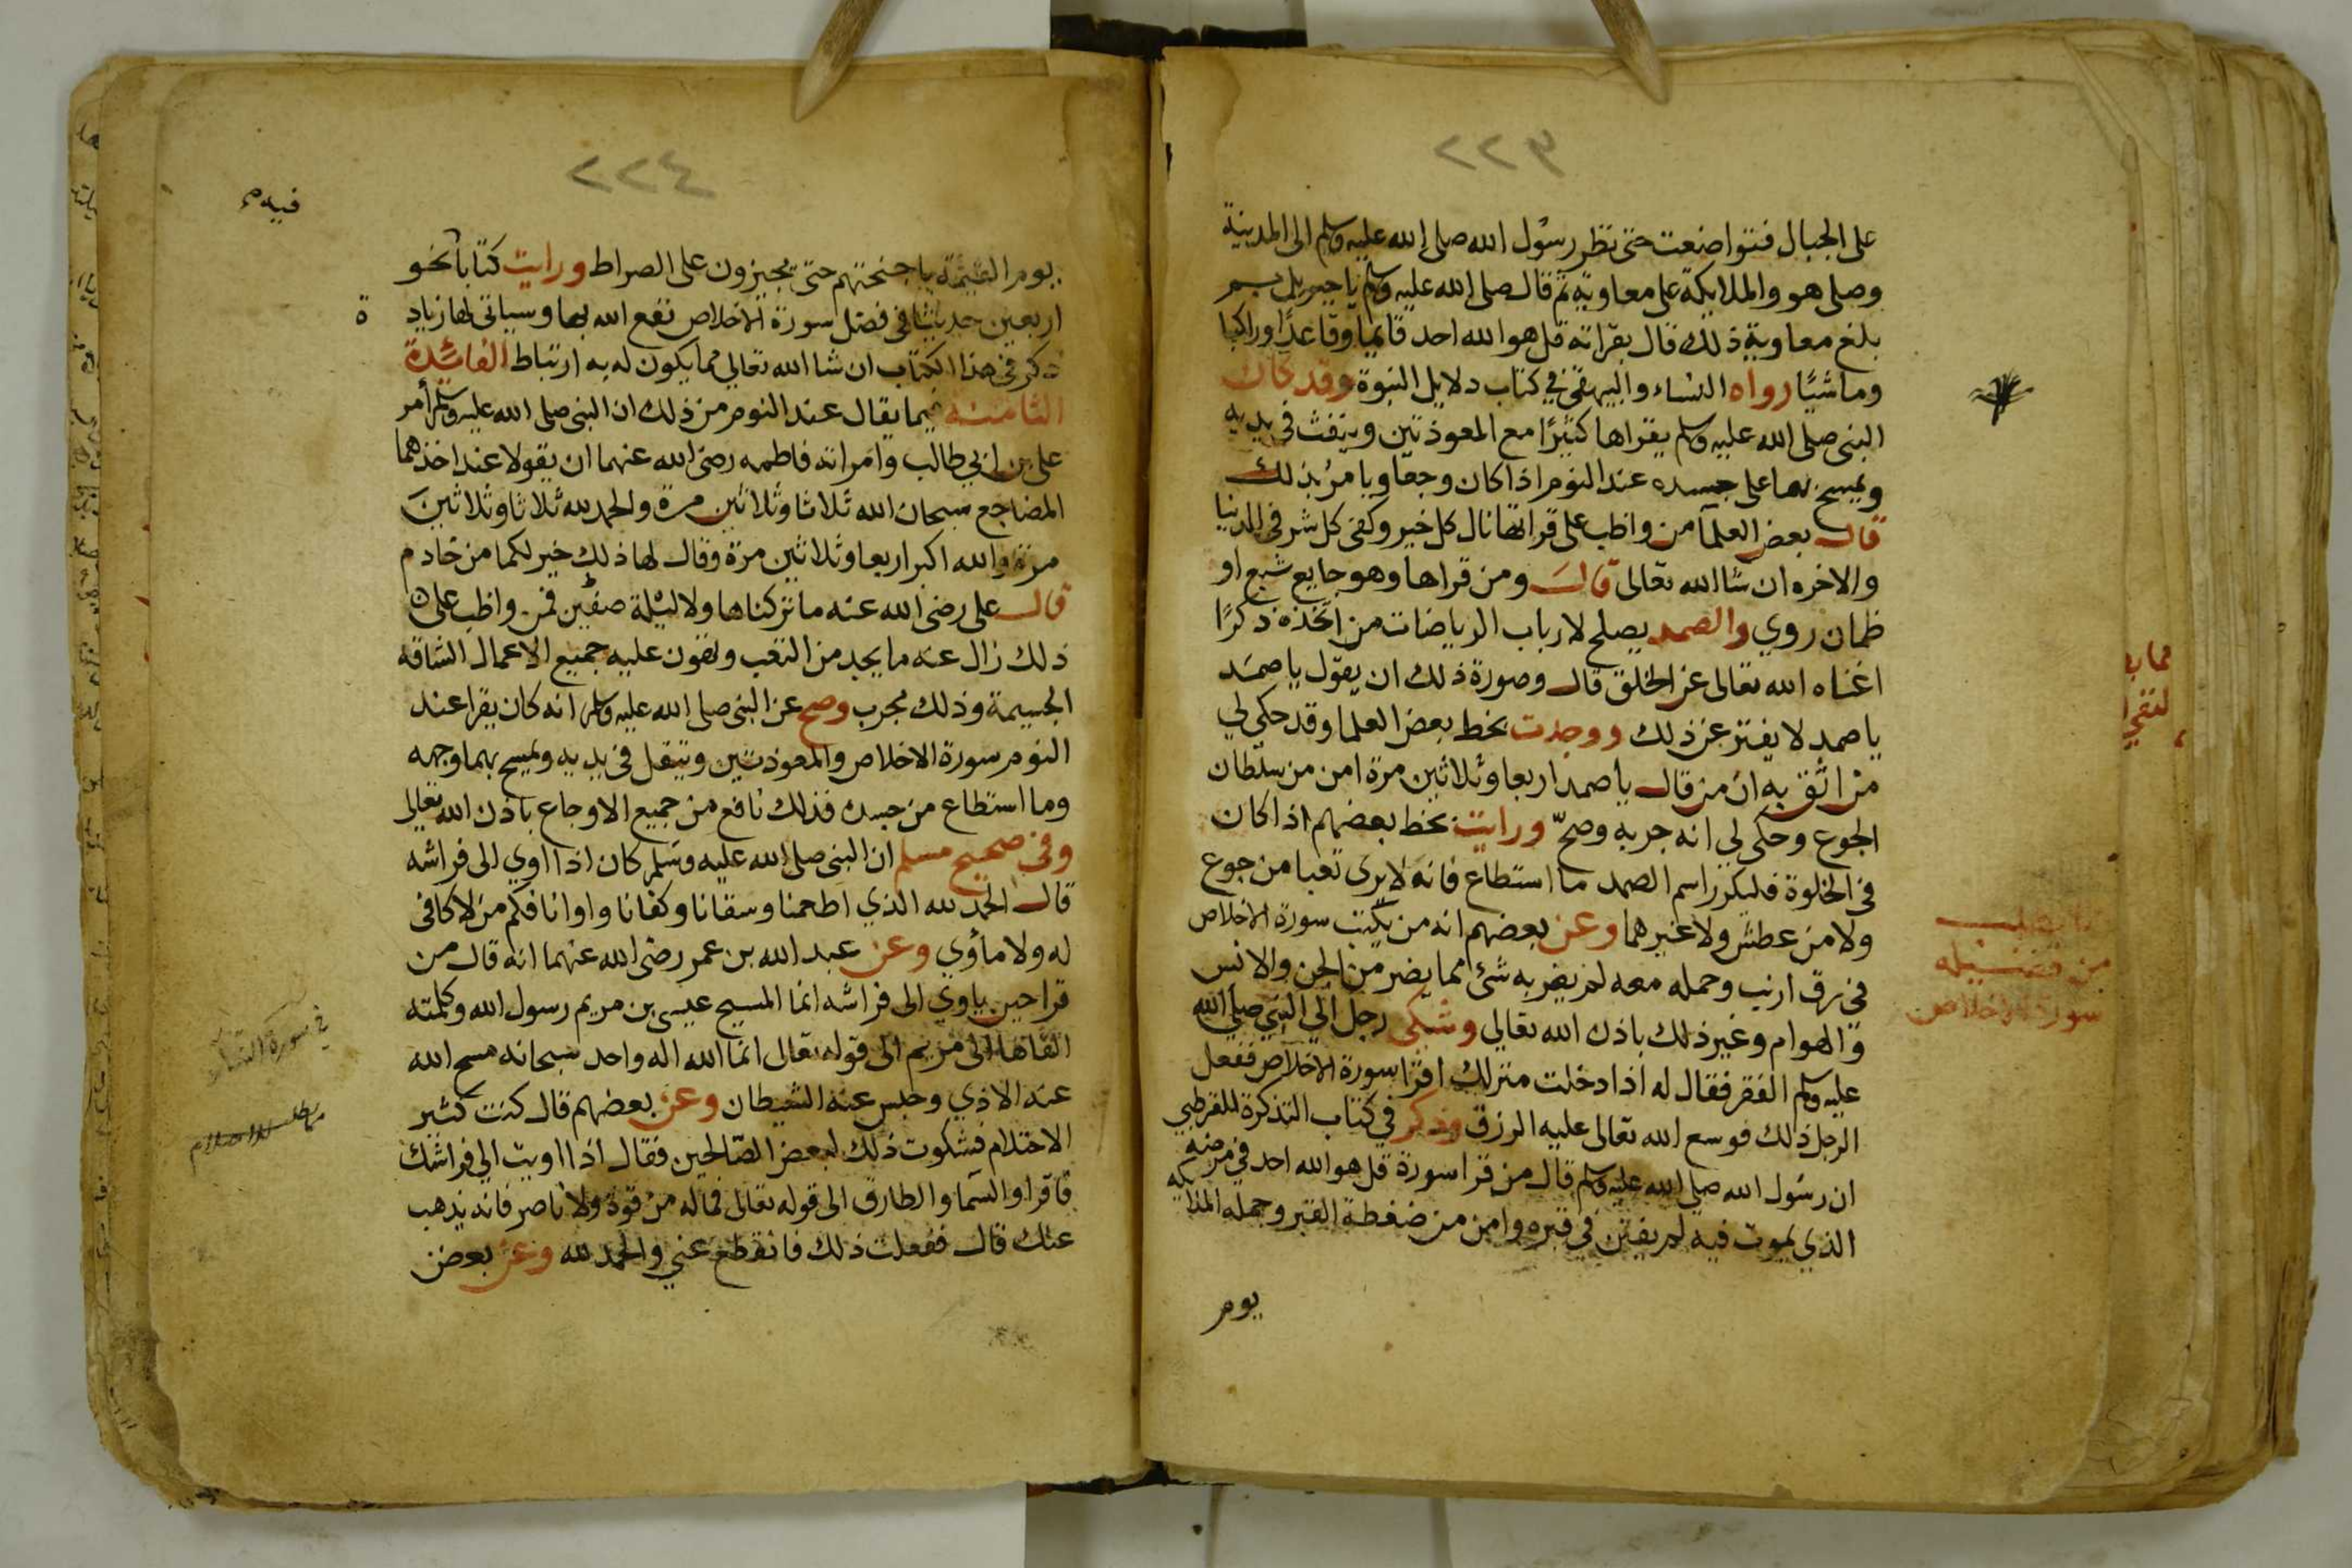 ٢٢٣
على الجبال فتواضعت حتى نظر رسول الله صلى الله عليه وسلم الى المدينة
وصلى هو والملايكة على معاوية ثم قال صلى الله عليه وسلم يا جبريل بم
بلغ معاوية ذلك قال بقراته قل هو الله احد قايما وقاعدا وراكبا
وماشيا رواه النساء والبيهقى في كتاب دلايل النبوة وقد كان
النبى صلى الله عليه وسلم يقراها كثيرا مع المعوذتين وينفث فى يديه
ويمسح بها على جسده عند النوم اذا كان وجعا ويامر بذلك
قال بعض العلما من واظب على قراتها نال كل خير وكفى كل شر فى الدنيا
والاخره ان شا الله تعالى قال ومن قراها وهو جايع شبع او
ظمان روي والصمد يصلح لارباب الرياضات من اتخذه ذكرا
اغناه الله تعالى عن الخلق قال وصورة ذلك ان يقول يا صمد
يا صمد لا يفتر عن ذلك ووجدت بخط بعض العلما وقد حكى لي
من اثق به ان من قال يا صمد اربعا وثلاثين مرة امن من سلطان
الجوع وحكى لي انه جربه وصح ورايت بخط بعضهم اذا كان
فى الخلوة فليكرر اسم الصمد ما استطاع فانه لا يرى تعبا من جوع
ولا من عطش ولا غيرهما وعن بعضهم انه من يكتب سورة الاخلاص
فى رق ارنب وحمله معه لم يضر به شئ مما يضر من الجن والانس
والهوام وغير ذلك باذن الله تعالى وشكى رجل الي النبي صلي الله
عليه وسلم الفقر فقال له اذا دخلت منزلك اقرا سورة الاخلاص ففعل
الرجل ذلك فوسع الله تعالى عليه الرزق وذكر في كتاب التذكرة للقرطبي
ان رسول الله صلي الله عليه وسلم قال من قرا سورة قل هو الله احد في مرضه
الذي يموت فيه لم يفتن في قبره وامن من ضغطة القبر وحمله الملايكه
يوم
من فضيله
سورة الاخلاص
٢٢٤
فيه
يوم القيمة باجنحتهم حتى يجيزون على الصراط ورايت كتابا نحو
اربعين حديثا فى فضل سورة الاخلاص نفع الله بها وسياتى لها زيادة
ذكر فى هذا الكتاب ان شا الله تعالى مما يكون له به ارتباط الفائدة
الثامنة فيما يقال عند النوم من ذلك ان النبى صلى الله عليه وسلم أمر
على بن ابي طالب وامراته فاطمه رضى الله عنهما ان يقولا عند اخذهما
المضاجع سبحان الله ثلاثا وثلاثين مرة والحمد لله ثلاثا وثلاثين
مرة والله اكبر اربعا وثلاثين مرة وقال لها ذلك خير لكما من خادم
قال على رضى الله عنه ما تركناها ولا ليلة صفين فمن واظب على
ذلك زال عنه ما يجد من التعب وتهون عليه جميع الاعمال الشاقة
الجسيمة وذلك مجرب وصح عن النبى صلى الله عليه وسلم انه كان يقرا عند
النوم سورة الاخلاص والمعوذتين ويتفل فى يديه ويمسح بهما وجهه
وما استطاع من جسده فذلك نافع من جميع الاوجاع باذن الله تعالى
وفى صحيح مسلم ان النبى صلى الله عليه وسلم كان اذا اوي الى فراشه
قال الحمد لله الذي اطعمنا وسقانا وكفانا واوانا فكم من لا كافى
له ولا مأوي وعن عبد الله بن عمر رضى الله عنهما انه قال من
قرا حين ياوي الى فراشه انما المسيح عيسى بن مريم رسول الله وكلمته
القاها الى مريم الى قوله تعالى انما الله اله واحد سبحانه مسح الله
عنه الاذي وحبس عنه الشيطان وعن بعضهم قال كنت كثير
الاحتلام فشكوت ذلك لبعض الصالحين فقال اذا اويت الى فراشك
فاقرا والسما والطارق الى قوله تعالى فما له من قوة ولا ناصر فانه يذهب
عنك قال ففعلت ذلك فانقطع عني والحمد لله وعن بعض
في سورة النساء